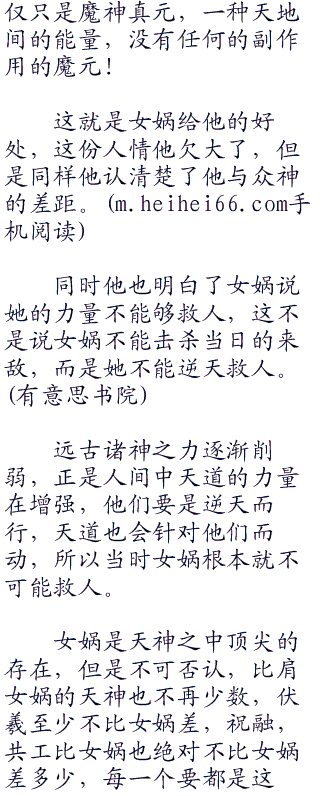 仅只是魔神真元，一种天地
间的能量，没有任何的副作
用的魔元！
这就是女娲给他的好
处，这份人情他欠大了，但
是同样他认清楚了他与众神
的差距。(m.heihei66.com手
机阅读)
同时他也明白了女娲说
她的力量不能够救人，这不
是说女娲不能击杀当日的来
敌，而是她不能逆天救人。
(有意思书院)
远古诸神之力逐渐削
弱，正是人间中天道的力量
在增强，他们要是逆天而
行，天道也会针对他们而
动，所以当时女娲根本就不
可能救人。
女娲是天神之中顶尖的
存在，但是不可否认，比肩
女娲的天神也不再少数，伏
羲至少不比女娲差，祝融，
共工比女娲也绝对不比女娲
差多少，每一个要都是这